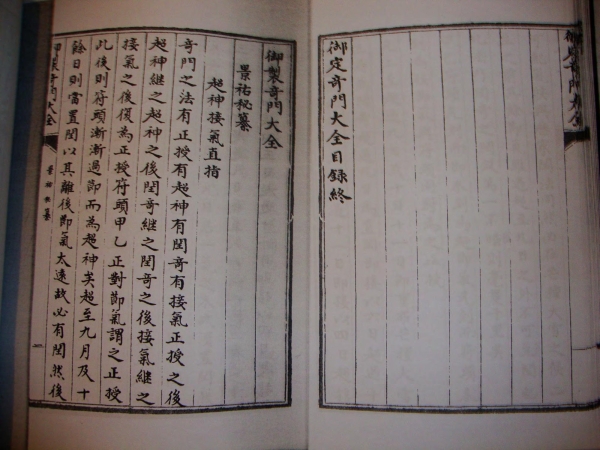 御定奇門大全目録終
御製奇門大全
景祐秘纂
超神接氣直指
奇門之法有正授有超神有閏奇有接氣正授之後
超神継之超神之後閏奇継之閏奇之後接氣継之
接氣之後復為正授符頭甲乙正對節氣謂之正授
此後則符頭漸漸過節而為超神矣超至九月及十
餘日則當置閏以其離後節氣太遠故必有閏然後
奇門大全
景祐秘纂